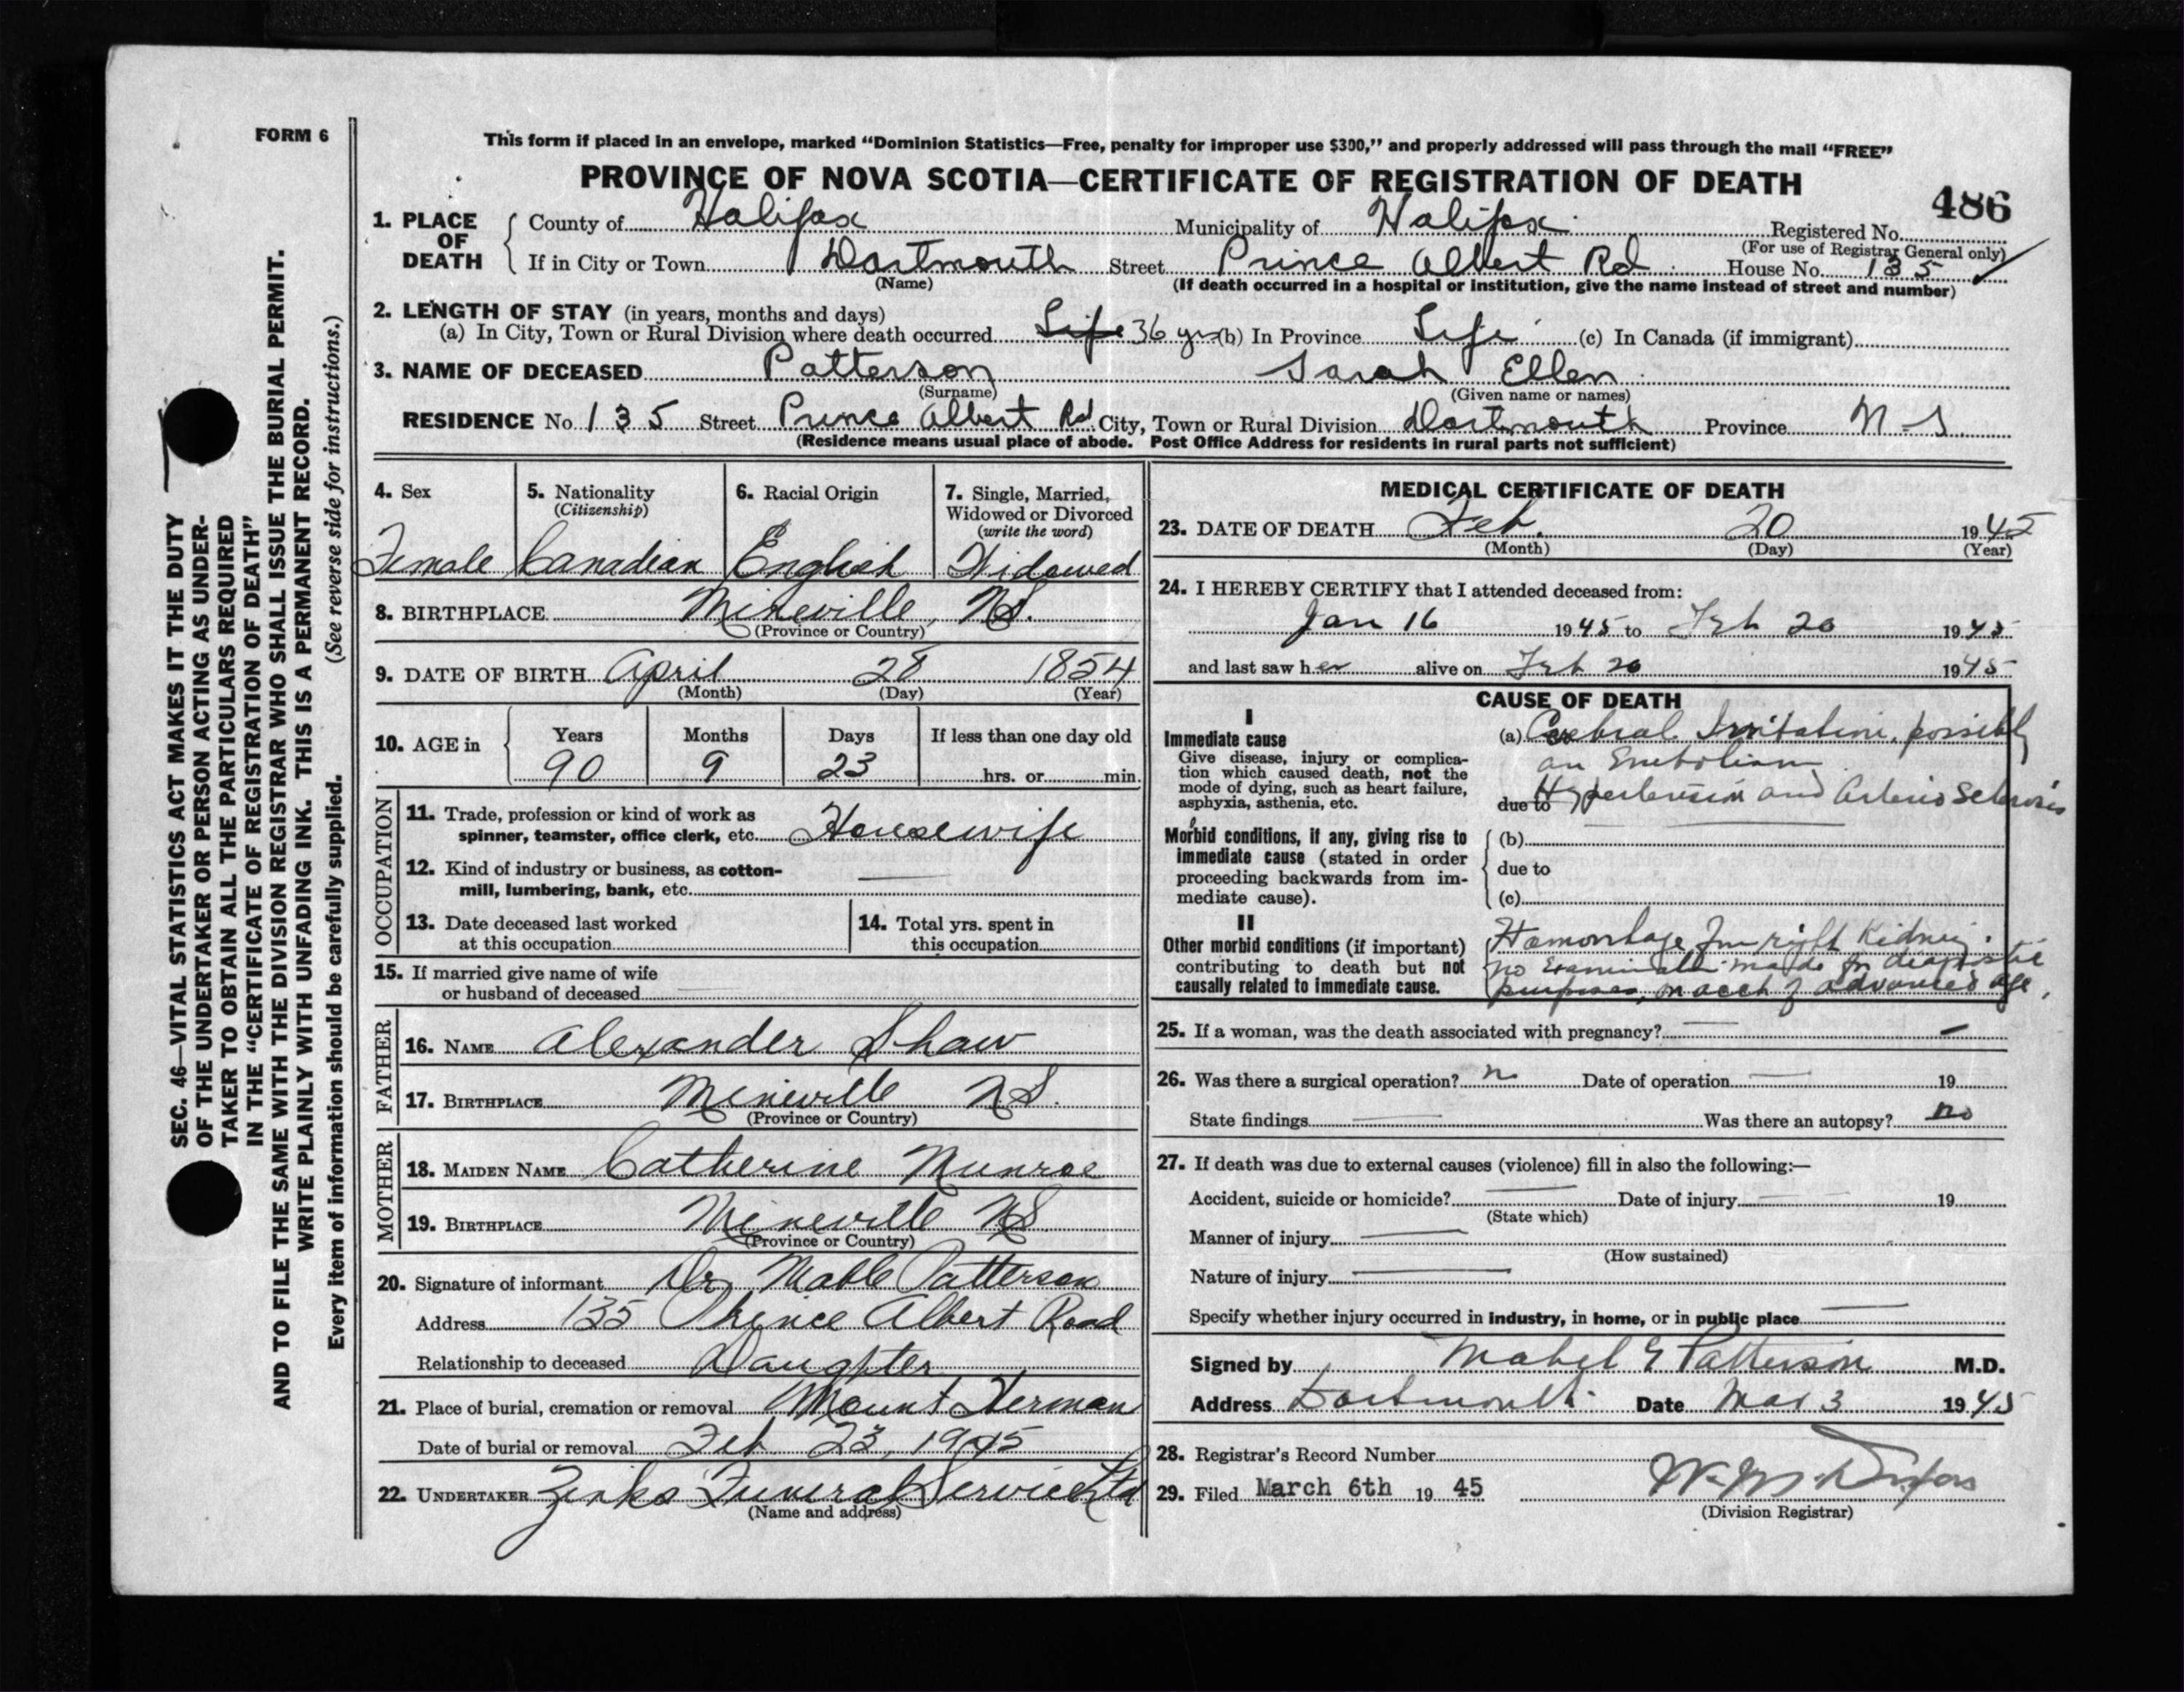 FORM 6
This form if placed in an envelope, marked "Dominion Statistics—Free, penalty for improper use $300," and properly addressed will pass through the mail "FREE"
PROVINCE OF NOVA SCOTIA—CERTIFICATE OF REGISTRATION OF DEATH
486
1. PLACE OF DEATH County of Halifax Municipality of Halifax Registered No.
(For use of Registrar General only)
If in City or Town Dartmouth Street Prince Albert Rd House No. 135
(Name) (If death occurred in a hospital or institution, give the name instead of street and number)
2. LENGTH OF STAY (in years, months and days)
(a) In City, Town or Rural Division where death occurred Life 36 yrs (b) In Province Life (c) In Canada (if immigrant)
3. NAME OF DECEASED Patterson Sarah Ellen
(Surname) (Given name or names)
RESIDENCE No 135 Street Prince Albert Rd. City, Town or Rural Division Dartmouth Province N-S
(Residence means usual place of abode. Post Office Address for residents in rural parts not sufficient)
4. Sex 5. Nationality 6. Racial Origin 7. Single, Married,
(Citizenship) Widowed or Divorced
(write the word)
Female Canadian English Widowed
8. BIRTHPLACE Mineville, N.S.
(Province or Country)
9. DATE OF BIRTH April 28 1854
(Month) (Day) (Year)
10. AGE in Years Months Days If less than one day old
90 9 23 hrs. or min.
OCCUPATION
11. Trade, profession or kind of work as
spinner, teamster, office clerk, etc. Housewife
12. Kind of industry or business, as cotton-
mill, lumbering, bank, etc.
13. Date deceased last worked 14. Total yrs. spent in
at this occupation this occupation
15. If married give name of wife
or husband of deceased
FATHER
16. NAME Alexander Shaw
17. BIRTHPLACE Mineville N.S.
(Province or Country)
MOTHER
18. MAIDEN NAME Catherine Munroe
19. BIRTHPLACE Mineville N.S
(Province or Country)
20. Signature of informant Dr. Mable Patterson
Address 135 Prince Albert Road
Relationship to deceased Daughter
21. Place of burial, cremation or removal Mount Herman
Date of burial or removal Feb. 23, 1945
22. UNDERTAKER Zinks Funeral Service Ltd
(Name and address)
MEDICAL CERTIFICATE OF DEATH
23. DATE OF DEATH Feb. 20 1945
(Month) (Day) (Year)
24. I HEREBY CERTIFY that I attended deceased from:
Jan 16 1945 to Feb 20 1945
and last saw her alive on Feb 20 1945
CAUSE OF DEATH
I
Immediate cause
Give disease, injury or complica-
tion which caused death, not the
mode of dying, such as heart failure,
asphyxia, asthenia, etc.
(a) Cerebral Irritation, possibly
an Embolism
due to Hypertension and Arterio Sclerosis
Morbid conditions, if any, giving rise to
immediate cause (stated in order
proceeding backwards from im-
mediate cause).
(b)
due to
(c)
II
Other morbid conditions (if important)
contributing to death but not
causally related to immediate cause.
Hemorrhage from right Kidney.
no examination made for diagnostic
purposes, on acct of advanced age.
25. If a woman, was the death associated with pregnancy?
26. Was there a surgical operation? no Date of operation 19
State findings Was there an autopsy? no
27. If death was due to external causes (violence) fill in also the following:—
Accident, suicide or homicide? Date of injury 19
(State which)
Manner of injury
(How sustained)
Nature of injury
Specify whether injury occurred in industry, in home, or in public place
Signed by Mabel E Patterson M.D.
Address Dartmouth Date Mar 3 1945
28. Registrar's Record Number
29. Filed March 6th 19 45
(Division Registrar)
SEC. 46—VITAL STATISTICS ACT MAKES IT THE DUTY
OF THE UNDERTAKER OR PERSON ACTING AS UNDER-
TAKER TO OBTAIN ALL THE PARTICULARS REQUIRED
IN THE "CERTIFICATE OF REGISTRATION OF DEATH"
AND TO FILE THE SAME WITH THE DIVISION REGISTRAR WHO SHALL ISSUE THE BURIAL PERMIT.
WRITE PLAINLY WITH UNFADING INK. THIS IS A PERMANENT RECORD.
Every item of information should be carefully supplied. (See reverse side for instructions.)